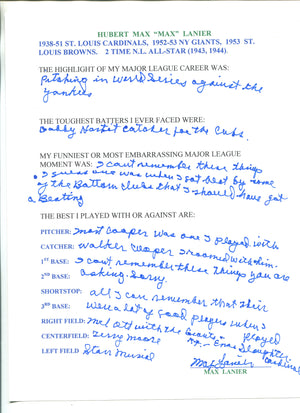 HUBERT MAX "MAX" LANIER
1938-51 ST. LOUIS CARDINALS, 1952-53 NY GIANTS, 1953 ST.
LOUIS BROWNS. 2 TIME N.L. ALL-STAR (1943, 1944).
THE HIGHLIGHT OF MY MAJOR LEAGUE CAREER WAS:
Pitching in World Series against the
Yankees
THE TOUGHEST BATTERS I EVER FACED WERE:
Gabby Hartnet Catcher for the Cubs.
MY FUNNIEST OR MOST EMBARRASSING MAJOR LEAGUE
MOMENT WAS: I cant remember these things
I guess one was when I got beat by some
of the Bottom Clubs that I should have got
a Beating
THE BEST I PLAYED WITH OR AGAINST ARE:
PITCHER: Mort Cooper was one I played with
CATCHER: Walker Cooper I roomed with him.
1ST BASE: I cant remember these things you are
2ND BASE: asking Sorry.
SHORTSTOP: all I can remember that their
3RD BASE: were a lot of good players when I
played
RIGHT FIELD: Mel Ott with the Giants + Enos Slaughter
Cardinals
CENTERFIELD: Terry Moore
LEFT FIELD Stan Musial
Max Lanier
MAX LANIER